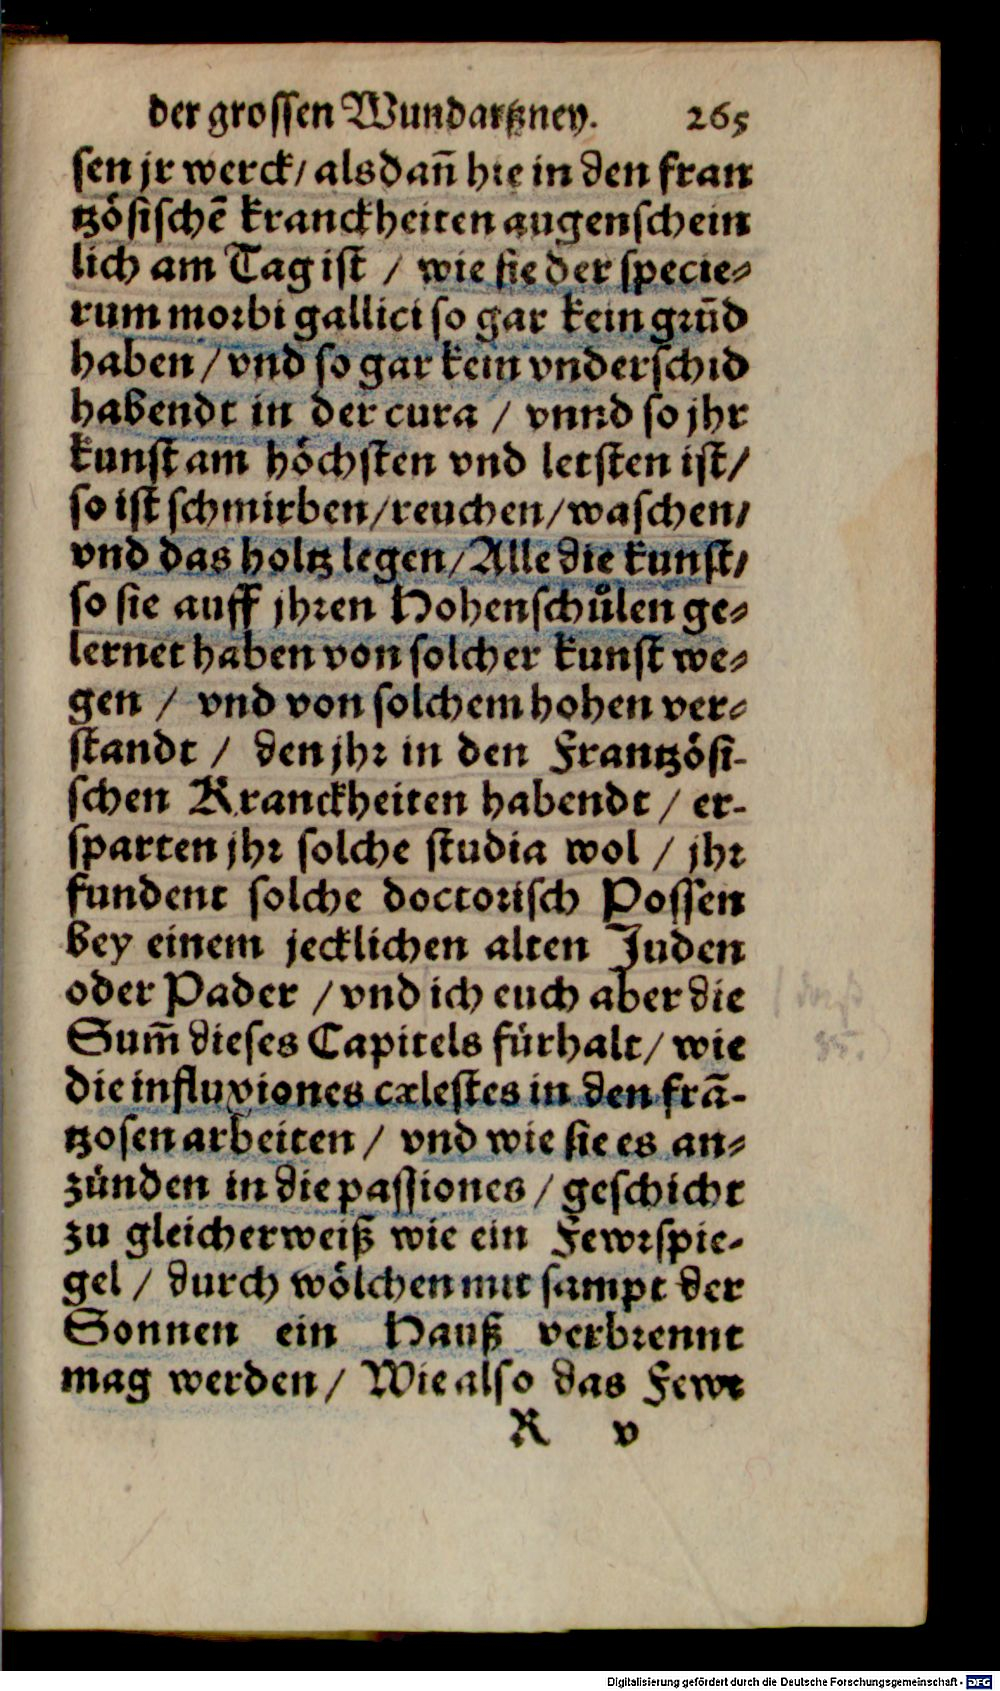 der grossen Wundartzney. 265
sen jr werck/ alsdañ hie in den fran
tzösischẽ kranckheiten augenschein
lich am Tag ist / wie sie der specie-
rum morbi gallici so gar kein grũd
haben / vnd so gar kein vnderschid
habendt in der cura / vnnd so jhr
kunst am höchsten vnd letsten ist/
so ist schmirben/reuchen/waschen/
vnd das holtz legen/Alle die kunst/
so sie auff jhren Hohenschůlen ge-
lernet haben von solcher kunst we-
gen / vnd von solchem hohen ver-
standt / den jhr in den Frantzösi-
schen Kranckheiten habendt / er-
sparten jhr solche studia wol / jhr
fundent solche doctorisch Possen
bey einem jecklichen alten Juden
oder Pader / vnd ich euch aber die
Sum̃ dieses Capitels fürhalt/ wie
die influxiones cælestes in den frã-
tzosen arbeiten / vnd wie sie es an-
zünden in die passiones / geschicht
zu gleicherweiß wie ein Fewrspie-
gel / durch wölchen mit sampt der
Sonnen ein Hauß verbrennt
mag werden/ Wie also das Fewr
R v
Digitalisierung gefördert durch die Deutsche Forschungsgemeinschaft - DFG